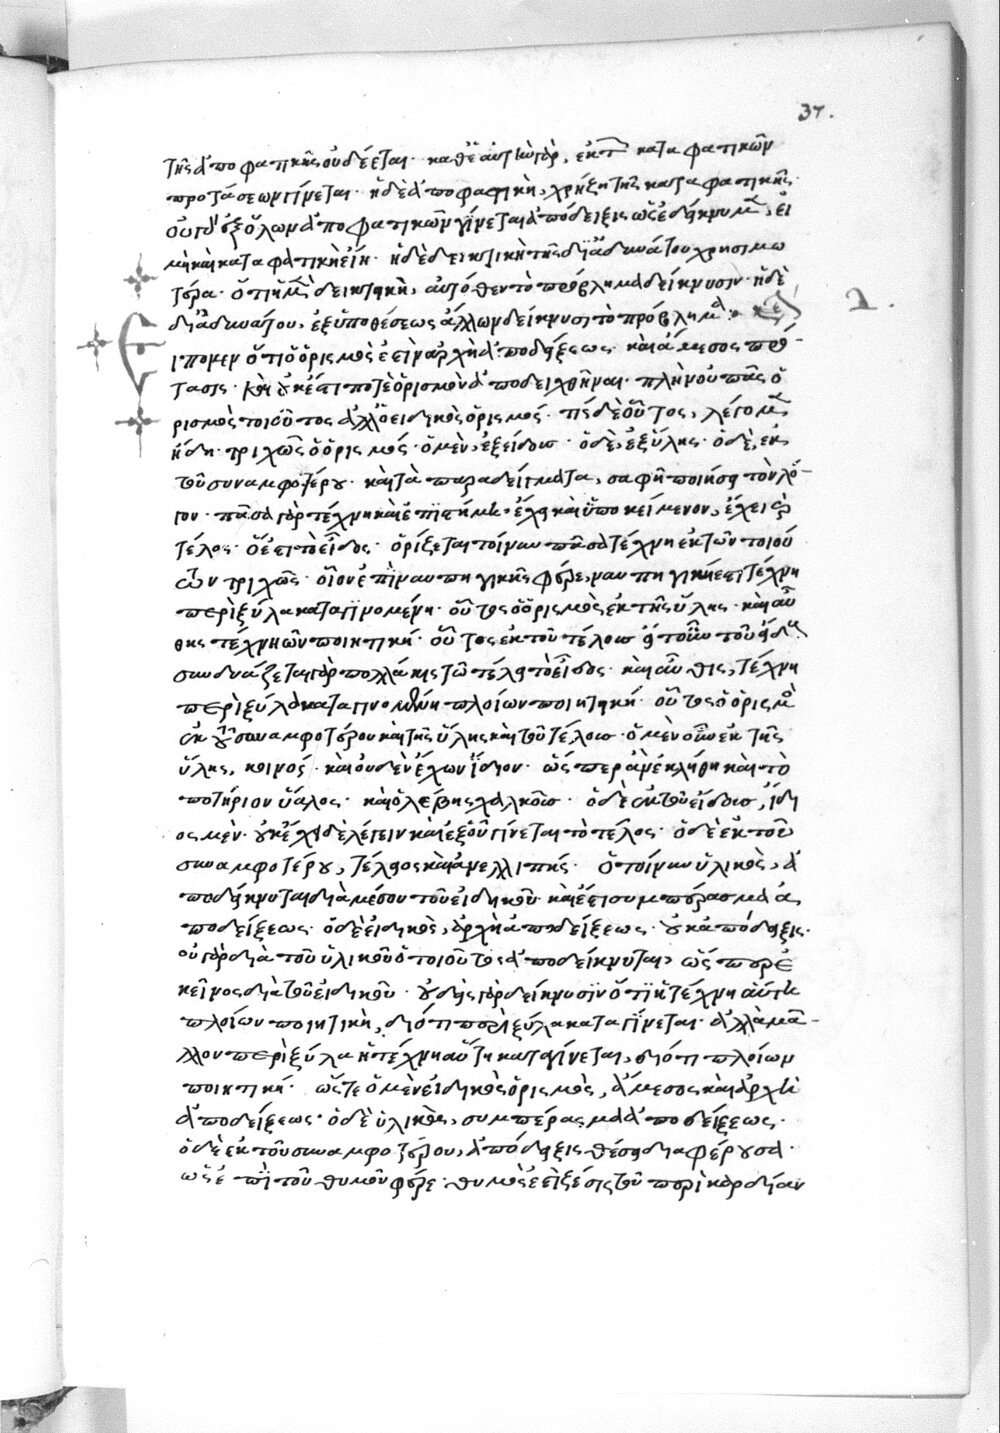 37.
τῆς ἀποφατικῆς οὐ δέεται· καθ' ἑαυτὴν γὰρ, ἐκ τῶν καταφατικῶν
προτάσεων γίνεται· ἡ δὲ ἀποφατικὴ, χρήζει τῆς καταφατικῆς·
οὐ γὰρ ἐξ ὅλων ἀποφατικῶν γίνεται ἀπόδειξις ὡς ἐδείκνυμεν, εἰ
μὴ καὶ καταφατικὴ εἴη· ἡ δὲ δεικτικὴ τῆς δι' ἀδυνάτου χρησιμω
τέρα· ὅτι ἡ μὲν δεικτικὴ, αὐτόθεν τὸ πρόβλημα δείκνυσιν· ἡ δὲ
δι' ἀδυνάτου, ἐξ ὑποθέσεως ἄλλων δείκνυσι τὸ πρόβλημα·
2.
Εἴπομεν ὅτι ὁ ὁρισμὸς ἐστὶν ἀρχὴ ἀποδείξεως καὶ ἄμεσος πρό-
τασις· καὶ οὐκ ἔστι ποτὲ ὁρισμὸν ἀποδειχθῆναι· πλὴν οὐ πᾶς ὁ
ρισμὸς τοιοῦτος ἀλλ' ὁ εἰδικὸς ὁρισμός· τίς δὲ οὗτος, λέγομεν
ἤδη· τριχῶς ὁ ὁρισμός· ὁ μὲν, ἐξ εἴδους· ὁ δὲ, ἐξ ὕλης· ὁ δὲ, ἐκ
τοῦ συναμφοτέρου· καὶ τὰ παραδείγματα, σαφῆ ποιήσει τὸν λό-
γον· πᾶσα γὰρ τέχνη καὶ ἐπιστήμη, ἔχει καὶ ὑποκείμενον, ἔχει καὶ
τέλος· ὅ ἐστι τὸ εἶδος· ὁρίζεται τοίνυν πᾶσα τέχνη ἐκ τῶν τοιού
των τριχῶς· οἷον ἐπὶ ναυπηγικῆς φέρε, ναυπηγική ἐστι τέχνη
περὶ ξύλα καταγινομένη· οὗτος ὁ ὁρισμὸς ἐκ τῆς ὕλης· καὶ αὖ
θις τέχνη ὧν ποιητική· οὗτος ἐκ τοῦ τέλους ἤτουν τοῦ εἴδους
συνδυάζεται γὰρ πολλάκις τῷ τέλει τὸ εἶδος· καὶ αὖθις, τέχνη
περὶ ξύλα καταγινομένη πλοίων ποιητική· οὗτος ὁ ὁρισμὸς
ἐκ τοῦ συναμφοτέρου καὶ τῆς ὕλης καὶ τοῦ τέλους· ὁ μὲν οὖν ἐκ τῆς
ὕλης, κοινός· καὶ οὐδὲν ἔχων ἴδιον· ὥσπερ ἂν ἐκλήθη καὶ τὸ
ποτήριον ὕαλος· καὶ ὁ λέβης χαλκοῦς· ὁ δὲ ἐκ τοῦ εἴδους, ἴδι
ος μὲν· οὐκ ἔχει δὲ λέγειν καὶ ἐξ οὗ γίνεται τὸ τέλος· ὁ δὲ ἐκ τοῦ
συναμφοτέρου, τέλειος καὶ ἀνελλιπής· ὁ τοίνυν ὑλικὸς, ἀ
ποδείκνυται διὰ μέσου τοῦ εἰδικοῦ· καὶ ἔστι συμπέρασμα ἀ
ποδείξεως· ὁ δὲ εἰδικὸς, ἀρχὴ ἀποδείξεως· οὐκ ἀπόδειξις·
οὐ γὰρ διὰ τοῦ ὑλικοῦ ὁ τοιοῦτος ἀποδείκνυται, ὥσπερ ἐ
κεῖνος διὰ τοῦ εἰδικοῦ· οὐδεὶς γὰρ δείκνυσιν ὅτι ἡ τέχνη αὕτη
πλοίων ποιητικὴ, διότι περὶ ξύλα καταγίνεται· ἀλλὰ μᾶ-
λλον περὶ ξύλα ἡ τέχνη αὕτη καταγίνεται, διότι πλοίων
ποιητική· ὥστε ὁ μὲν εἰδικὸς ὁρισμὸς, ἄμεσος καὶ ἀρχὴ
ἀποδείξεως· ὁ δὲ ὑλικὸς, συμπέρασμα ἀποδείξεως·
ὁ δὲ ἐκ τοῦ συναμφοτέρου, ἀπόδειξις θέσει διαφέρουσα·
ὡς ἐπὶ τοῦ θυμοῦ φέρε· θυμός ἐστι ζέσις τοῦ περὶ καρδίαν